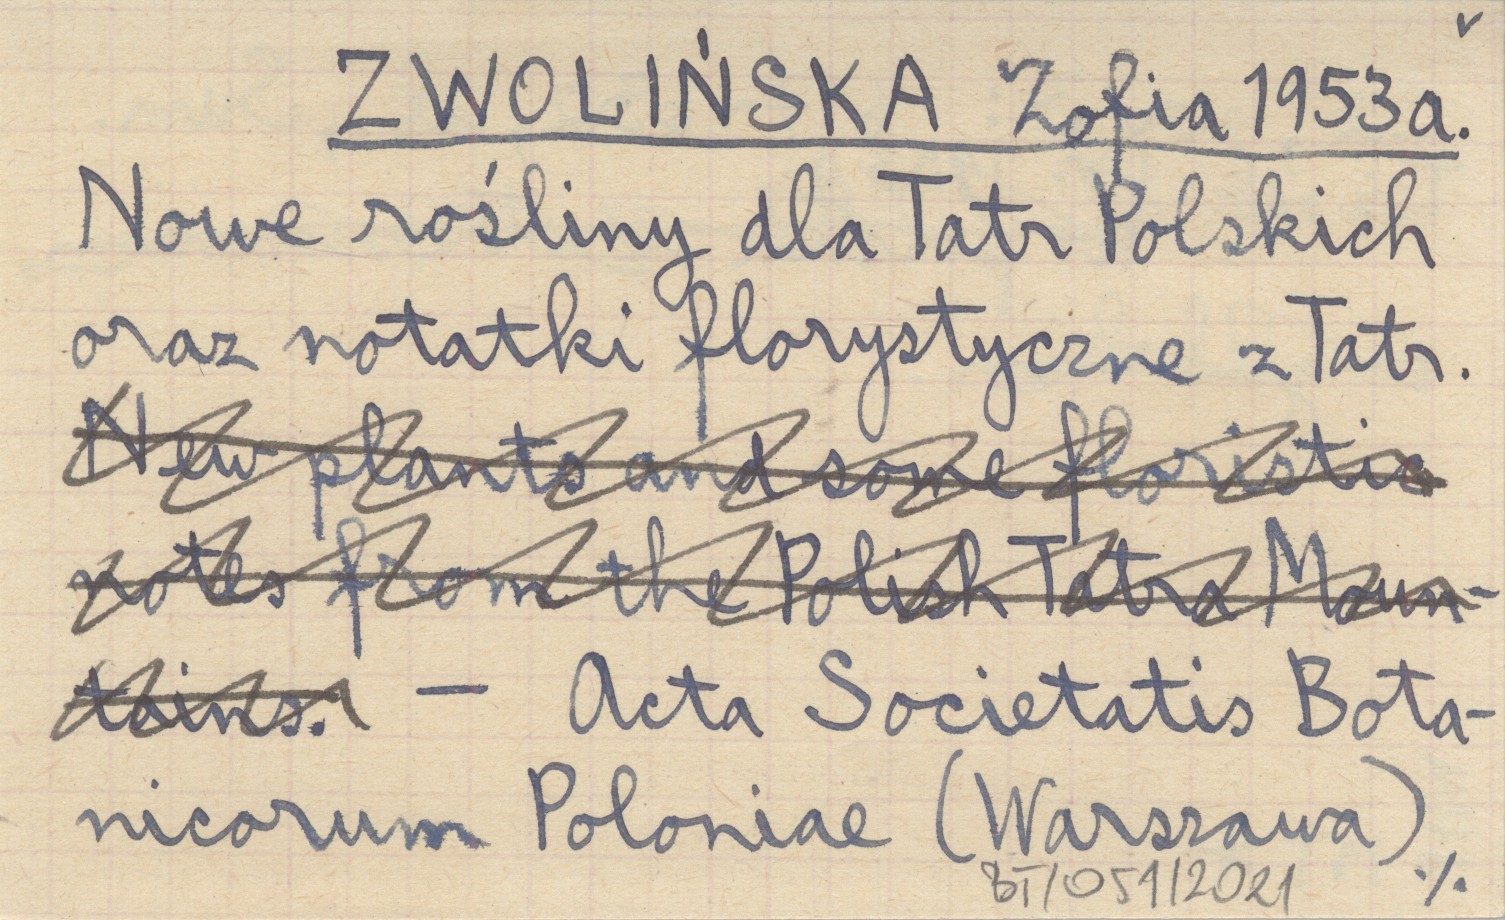 ZWOLIŃSKA Zofia 1953a.
Nowe rośliny dla Tatr Polskich
oraz notatki florystyczne z Tatr.
New plants and some floristic
notes from the Polish Tatra Moun-
tains. — Acta Societatis Bota-
nicorum Poloniae (Warszawa)
BT/051/2021 ./.